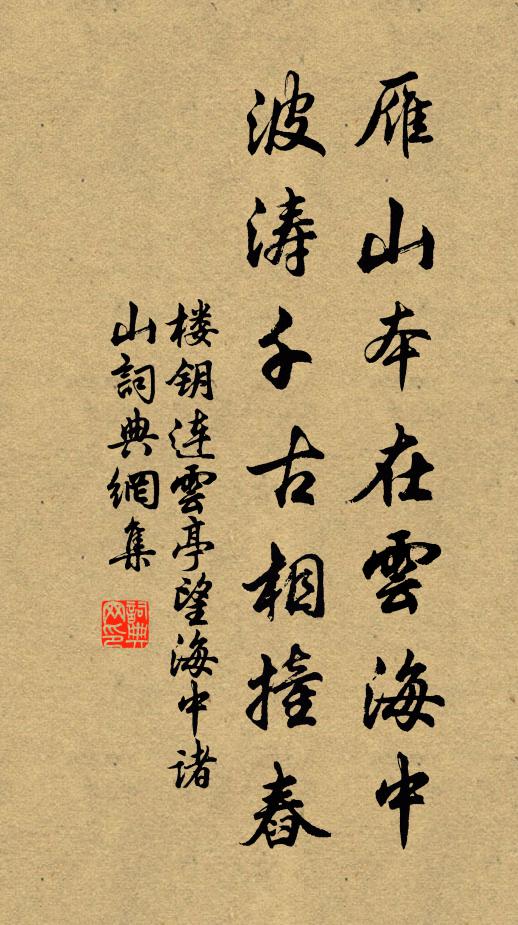 雁山本在雲海中
波涛千古相撞舂
楼钥连雲亭望海中诸
山詞典網集
詞典网印